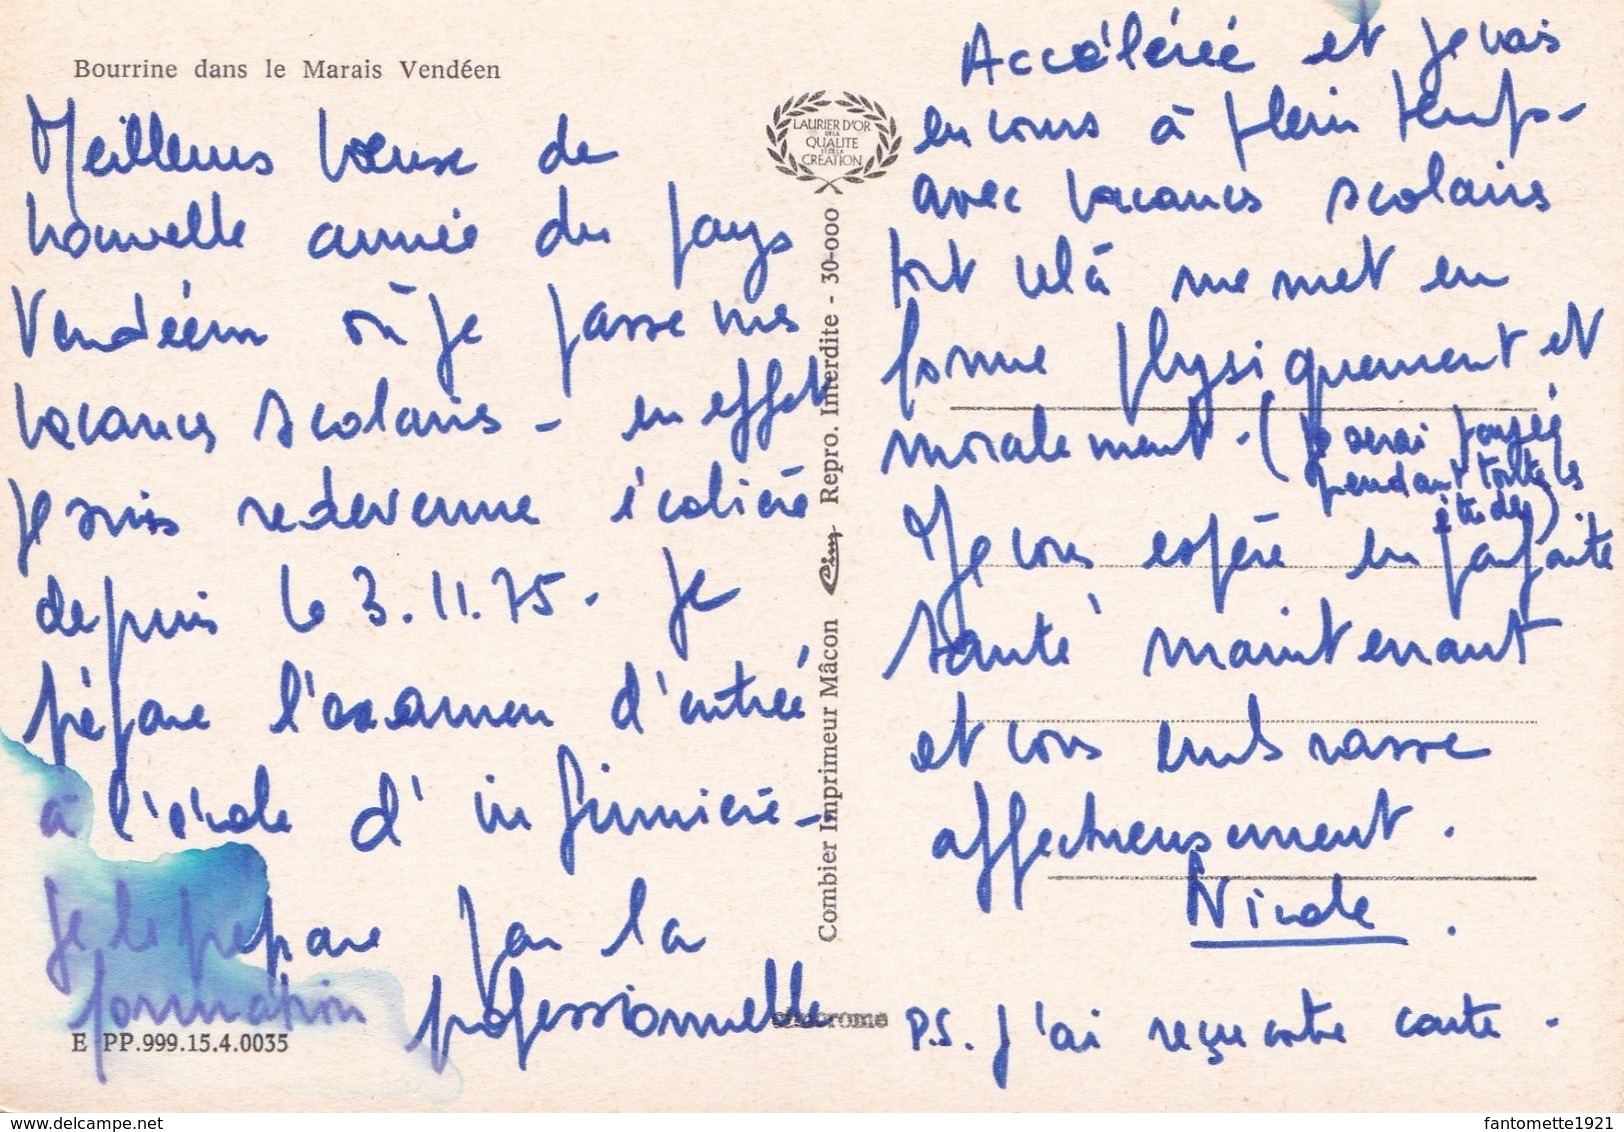 Bourrine dans le Marais Vendéen
Meilleurs voeux de
nouvelle année du pays
Vendéen où je passe mes
vacances scolaires - en effet
je suis redevenue écolière
depuis le 3.11.75. Je
prépare l'examen d'entrée
à l'école d'infirmière -
Je le prépare par la
formation professionnelle
E PP.999.15.4.0035
LAURIER D'OR
DE LA
QUALITE
ET DE LA
CREATION
Combier Imprimeur Mâcon Cim Repro. Interdite - 30-000
Accélérée et je vais
en cours à plein temps -
avec vacances scolaires
tout celà me met en
forme physiquement et
moralement. (je serai payée
pendant toutes les
études)
Je vous espère en parfaite
santé maintenant
et vous embrasse
affectueusement.
Nicole.
P.S. J'ai reçu votre carte.
fantomette1921